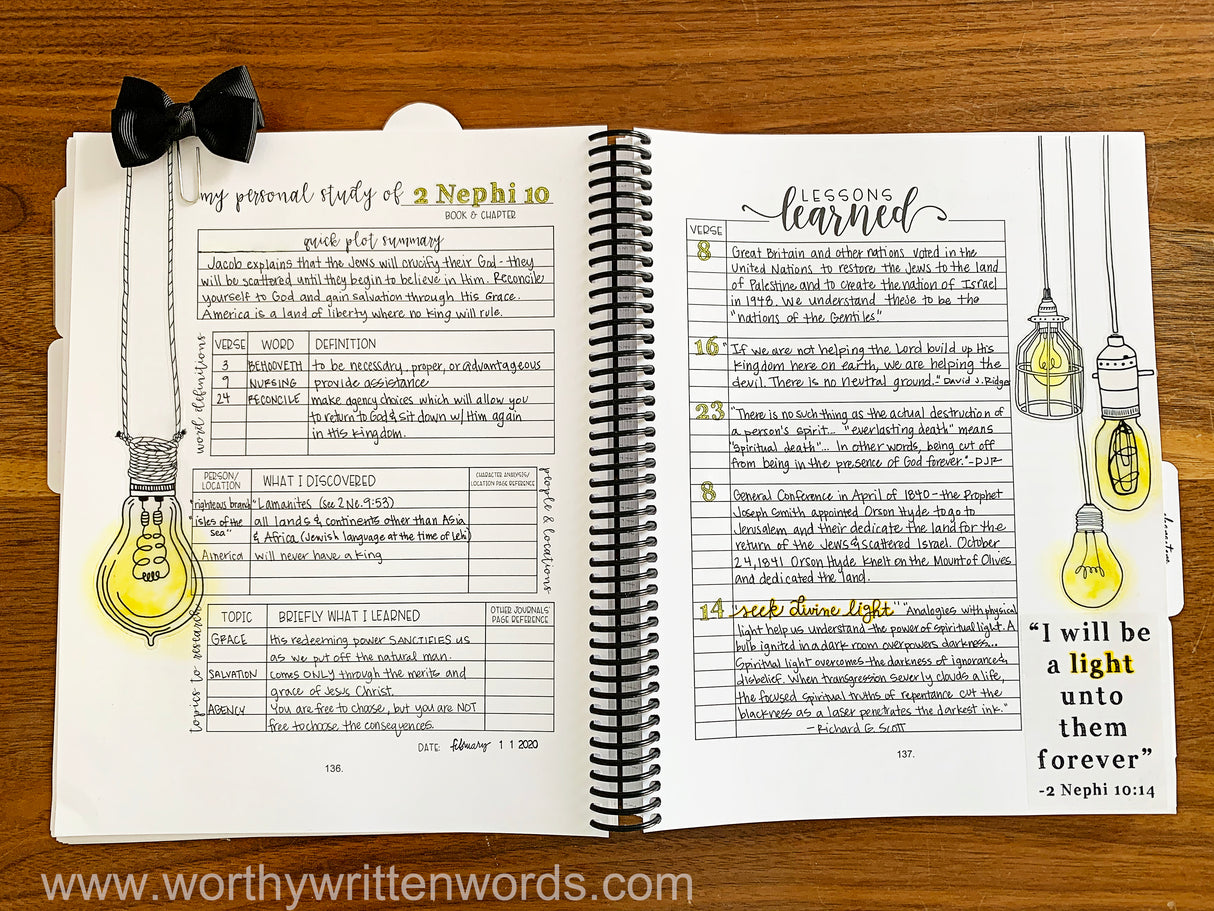 my personal study of 2 Nephi 10
BOOK & CHAPTER
quick plot summary
Jacob explains that the Jews will crucify their God - they
will be scattered until they begin to believe in Him. Reconcile
yourself to God and gain salvation through His Grace.
America is a land of liberty where no king will rule.
word definitions
VERSE WORD DEFINITION
3 BEHOOVETH to be necessary, proper, or advantageous
9 NURSING provide assistance
24 RECONCILE make agency choices which will allow you
to return to God & sit down w/ Him again
in His kingdom.
PERSON/ LOCATION WHAT I DISCOVERED CHARACTER ANALYSIS/ LOCATION PAGE REFERENCE
people & locations
"righteous branch" Lamanites (see 2 Ne. 9:53)
"isles of the sea" all lands & continents other than Asia
& Africa (Jewish language at the time of Lehi)
America will never have a king
topics to research
TOPIC BRIEFLY WHAT I LEARNED OTHER JOURNALS' PAGE REFERENCE
GRACE His redeeming power SANCTIFIES us
as we put off the natural man.
SALVATION comes ONLY through the merits and
grace of Jesus Christ.
AGENCY You are free to choose, but you are NOT
free to choose the consequences.
DATE: february 11 2020
136.
LESSONS
learned
VERSE
8 Great Britain and other nations voted in the
United Nations to restore the Jews to the land
of Palestine and to create the nation of Israel
in 1948. We understand these to be the
"nations of the Gentiles."
16 "If we are not helping the Lord build up His
kingdom here on earth, we are helping the
devil. There is no neutral ground." David J. Ridge
23 "There is no such thing as the actual destruction of
a person's spirit... "everlasting death" means
"spiritual death"... In other words, being cut off
from being in the presence of God forever." -DJR
8 General Conference in April of 1840 - the Prophet
Joseph Smith appointed Orson Hyde to go to
Jerusalem and their dedicate the land for the
return of the Jews & scattered Israel. October
24, 1841 Orson Hyde knelt on the Mount of Olives
and dedicated the land.
14 "seek divine light" "Analogies with physical
light help us understand the power of spiritual light. A
bulb ignited in a dark room overpowers darkness...
Spiritual light overcomes the darkness of ignorances,
disbelief. When transgression severly clouds a life,
the focused spiritual truths of repentance cut the
blackness as a laser penetrates the darkest ink."
- Richard G. Scott
137.
"I will be
a light
unto
them
forever"
-2 Nephi 10:14
www.worthywrittenwords.com